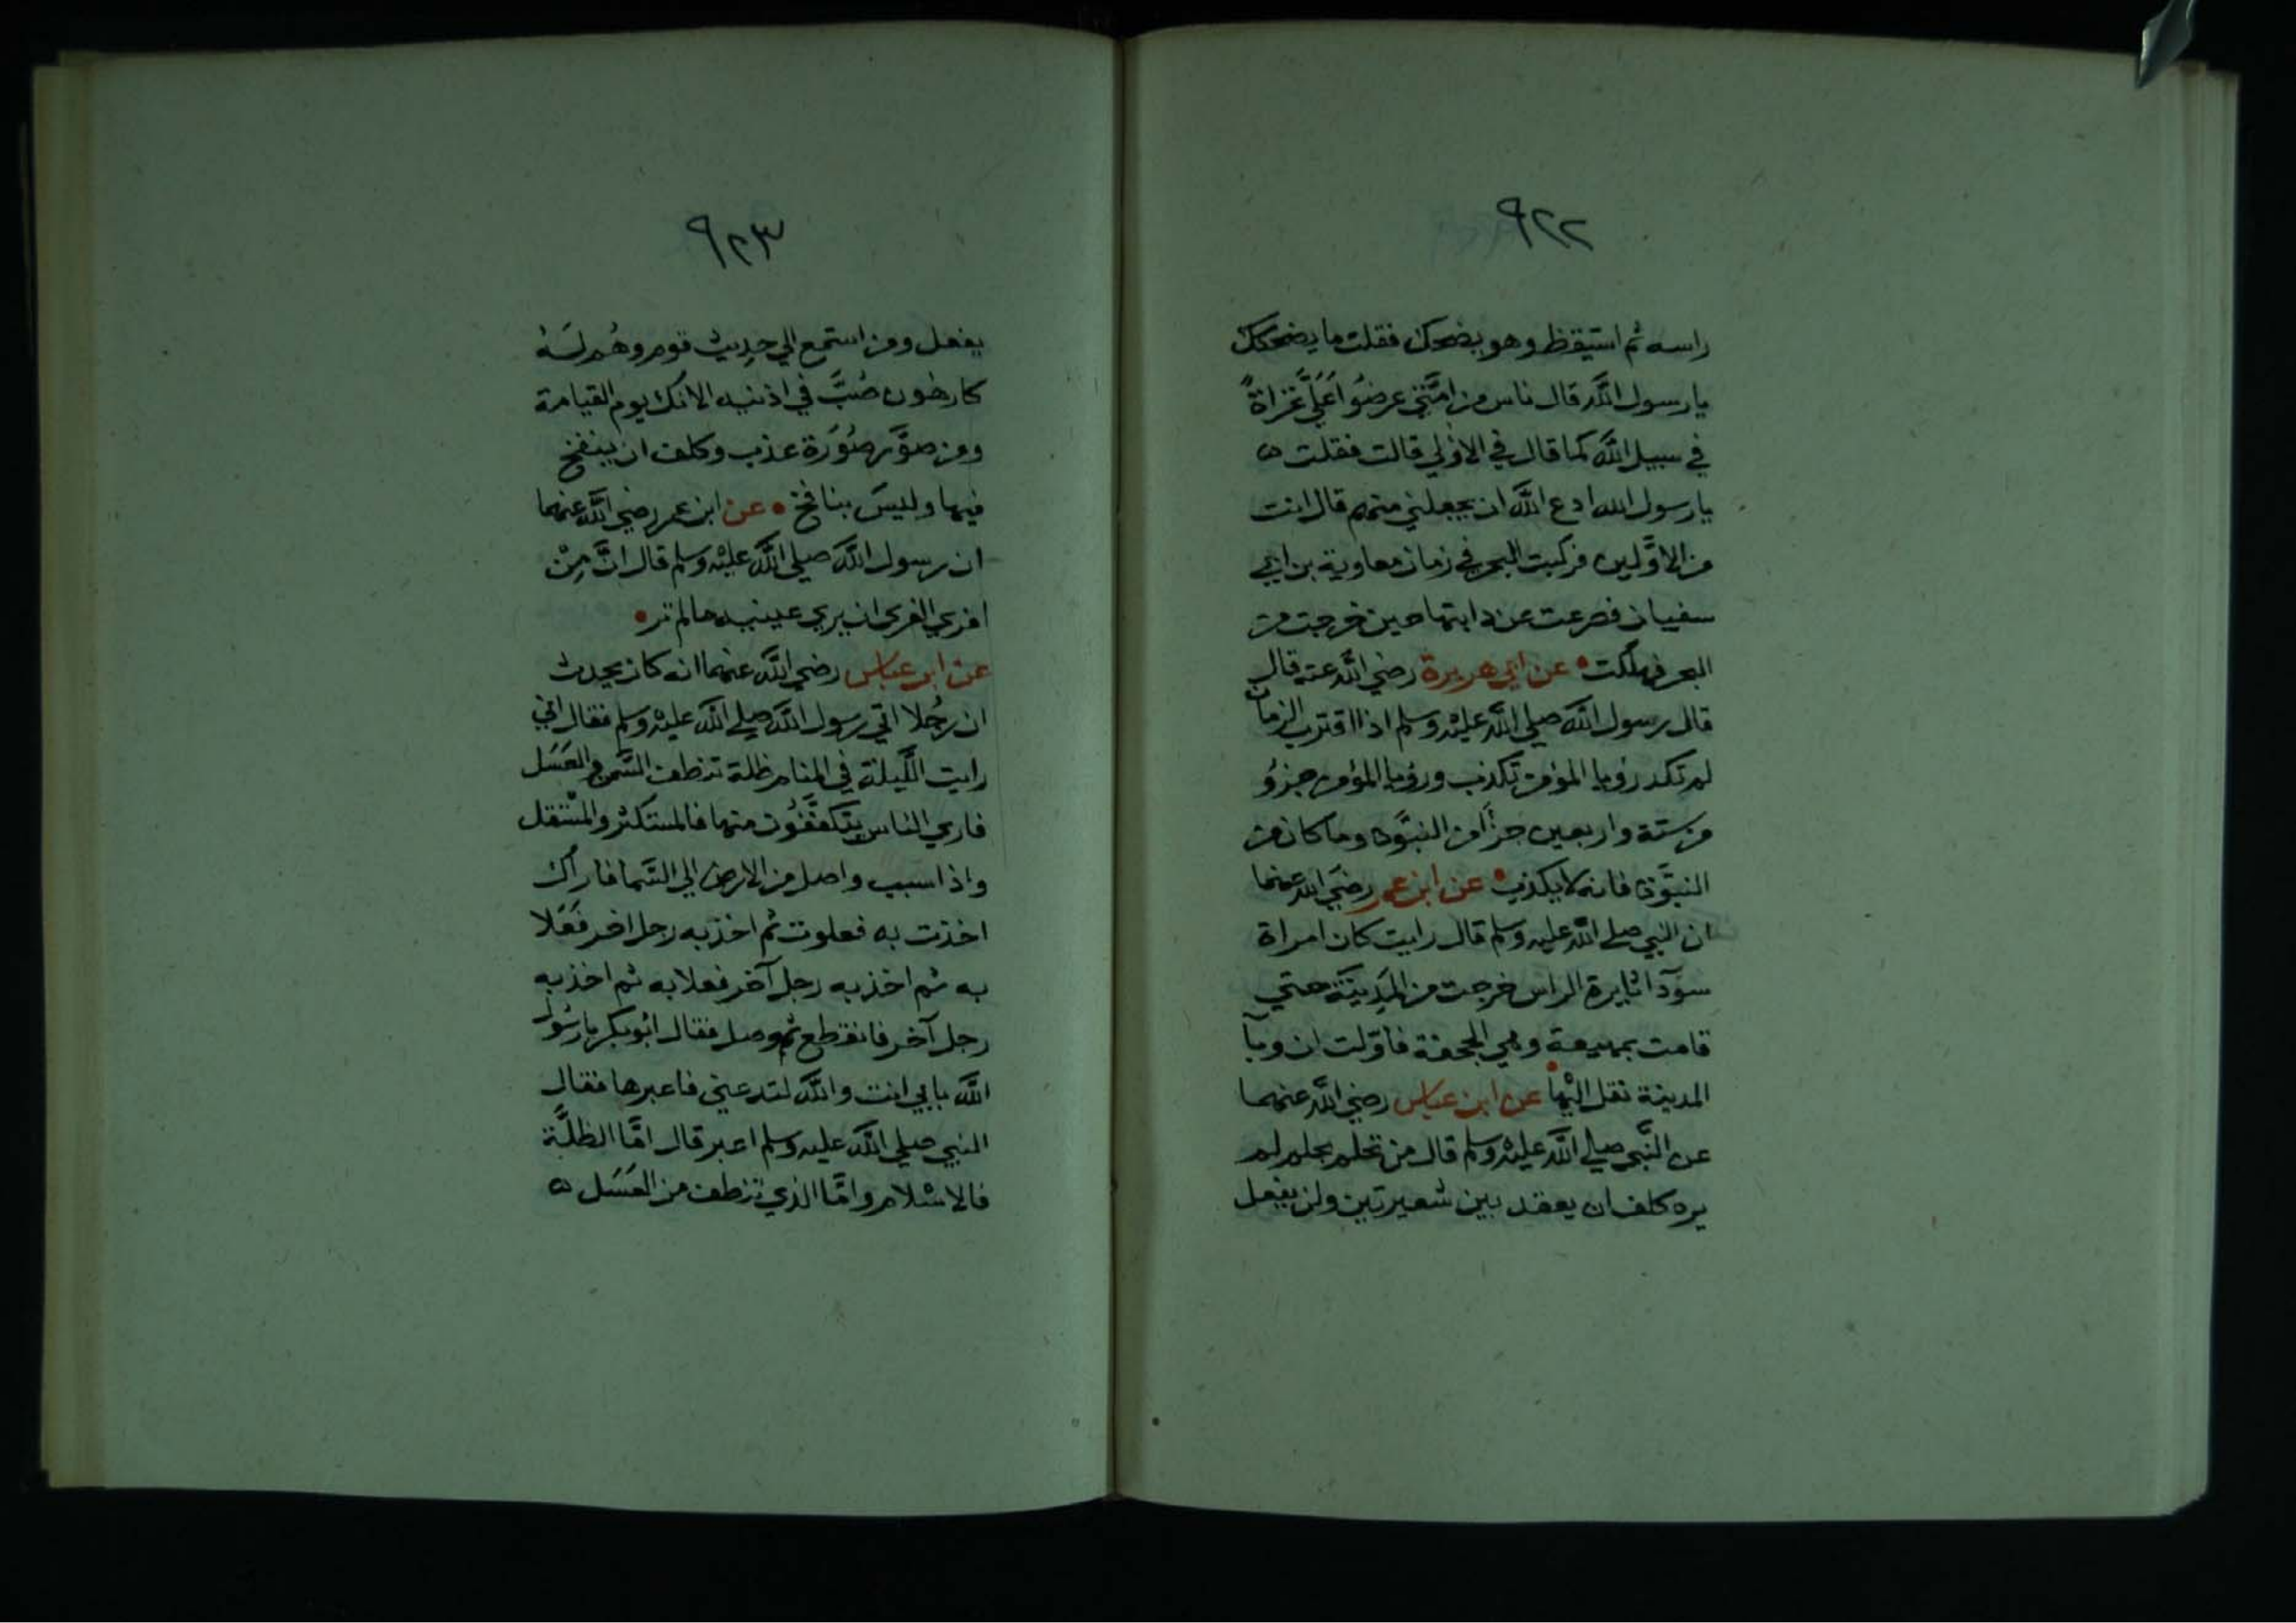 ٩٢٢
راسه ثم استيقظ وهو يضحك فقلت ما يضحكك
يا رسول الله قال ناس من امتي عرضوا علي غزاة
في سبيل الله كما قال في الاولي قالت فقلت
يا رسول الله ادع الله ان يجعلني منهم قال انت
من الاولين فركبت البحر في زمان معاوية بن ابي
سفيان فصرعت عن دابتها حين خرجت من
البحر فهلكت عن ابي هريرة رضي الله عنه قال
قال رسول الله صلي الله عليه وسلم اذا اقترب الزمان
لم تكد رؤيا المؤمن تكذب ورؤيا المؤمن جزؤ
من ستة واربعين جزأ من النبوة وما كان من
النبوة فانه لا يكذب عن ابن عمر رضي الله عنهما
ان النبي صلي الله عليه وسلم قال رايت كان امراة
سودآ ثايرة الراس خرجت من المدينة حتي
قامت بمهيعة وهي الجحفة فاولت ان وبآ
المدينة نقل اليها عن ابن عباس رضي الله عنهما
عن النبي صلي الله عليه وسلم قال من تحلم بحلم لم
يره كلف ان يعقد بين شعيرتين ولن يفعل
٩٢٣
يفعل ومن استمع الي حديث قوم وهم له
كارهون صُبَّ في اذنيه الانك يوم القيامة
ومن صوَّر صُورة عذب وكلف ان ينفخ
فيها وليسَ بنافخ عن ابن عمر رضي الله عنهما
ان رسول الله صلي الله عليه وسلم قال انَّ مِنْ
افري الفري ان يري عينيه ما لم تر
عن ابن عباس رضي الله عنهما انه كان يحدث
ان رجُلا اتي رسول الله صلي الله عليه وسلم فقال اني
رايت اللَّيلة في المنام ظلة تنطف السَّمن والعَسَل
فاري الناس يتكففُون منها فالمستكثر والمستقل
واذا سبب واصل من الارض الي السَّما فاراك
اخذت به فعلوت ثم اخذ به رجل اخر فَعَلا
به ثم اخذ به رجل آخر فعلا به ثم اخذ به
رجل آخر فانقطع ثم وصل فقال ابو بكر يا رسُول
الله بابي انت والله لتدعني فاعبرها فقال
النبي صلي الله عليه وسلم اعبر قال امَّا الظلَّة
فالاسْلام وامَّا الذي تنطف من العَسَل